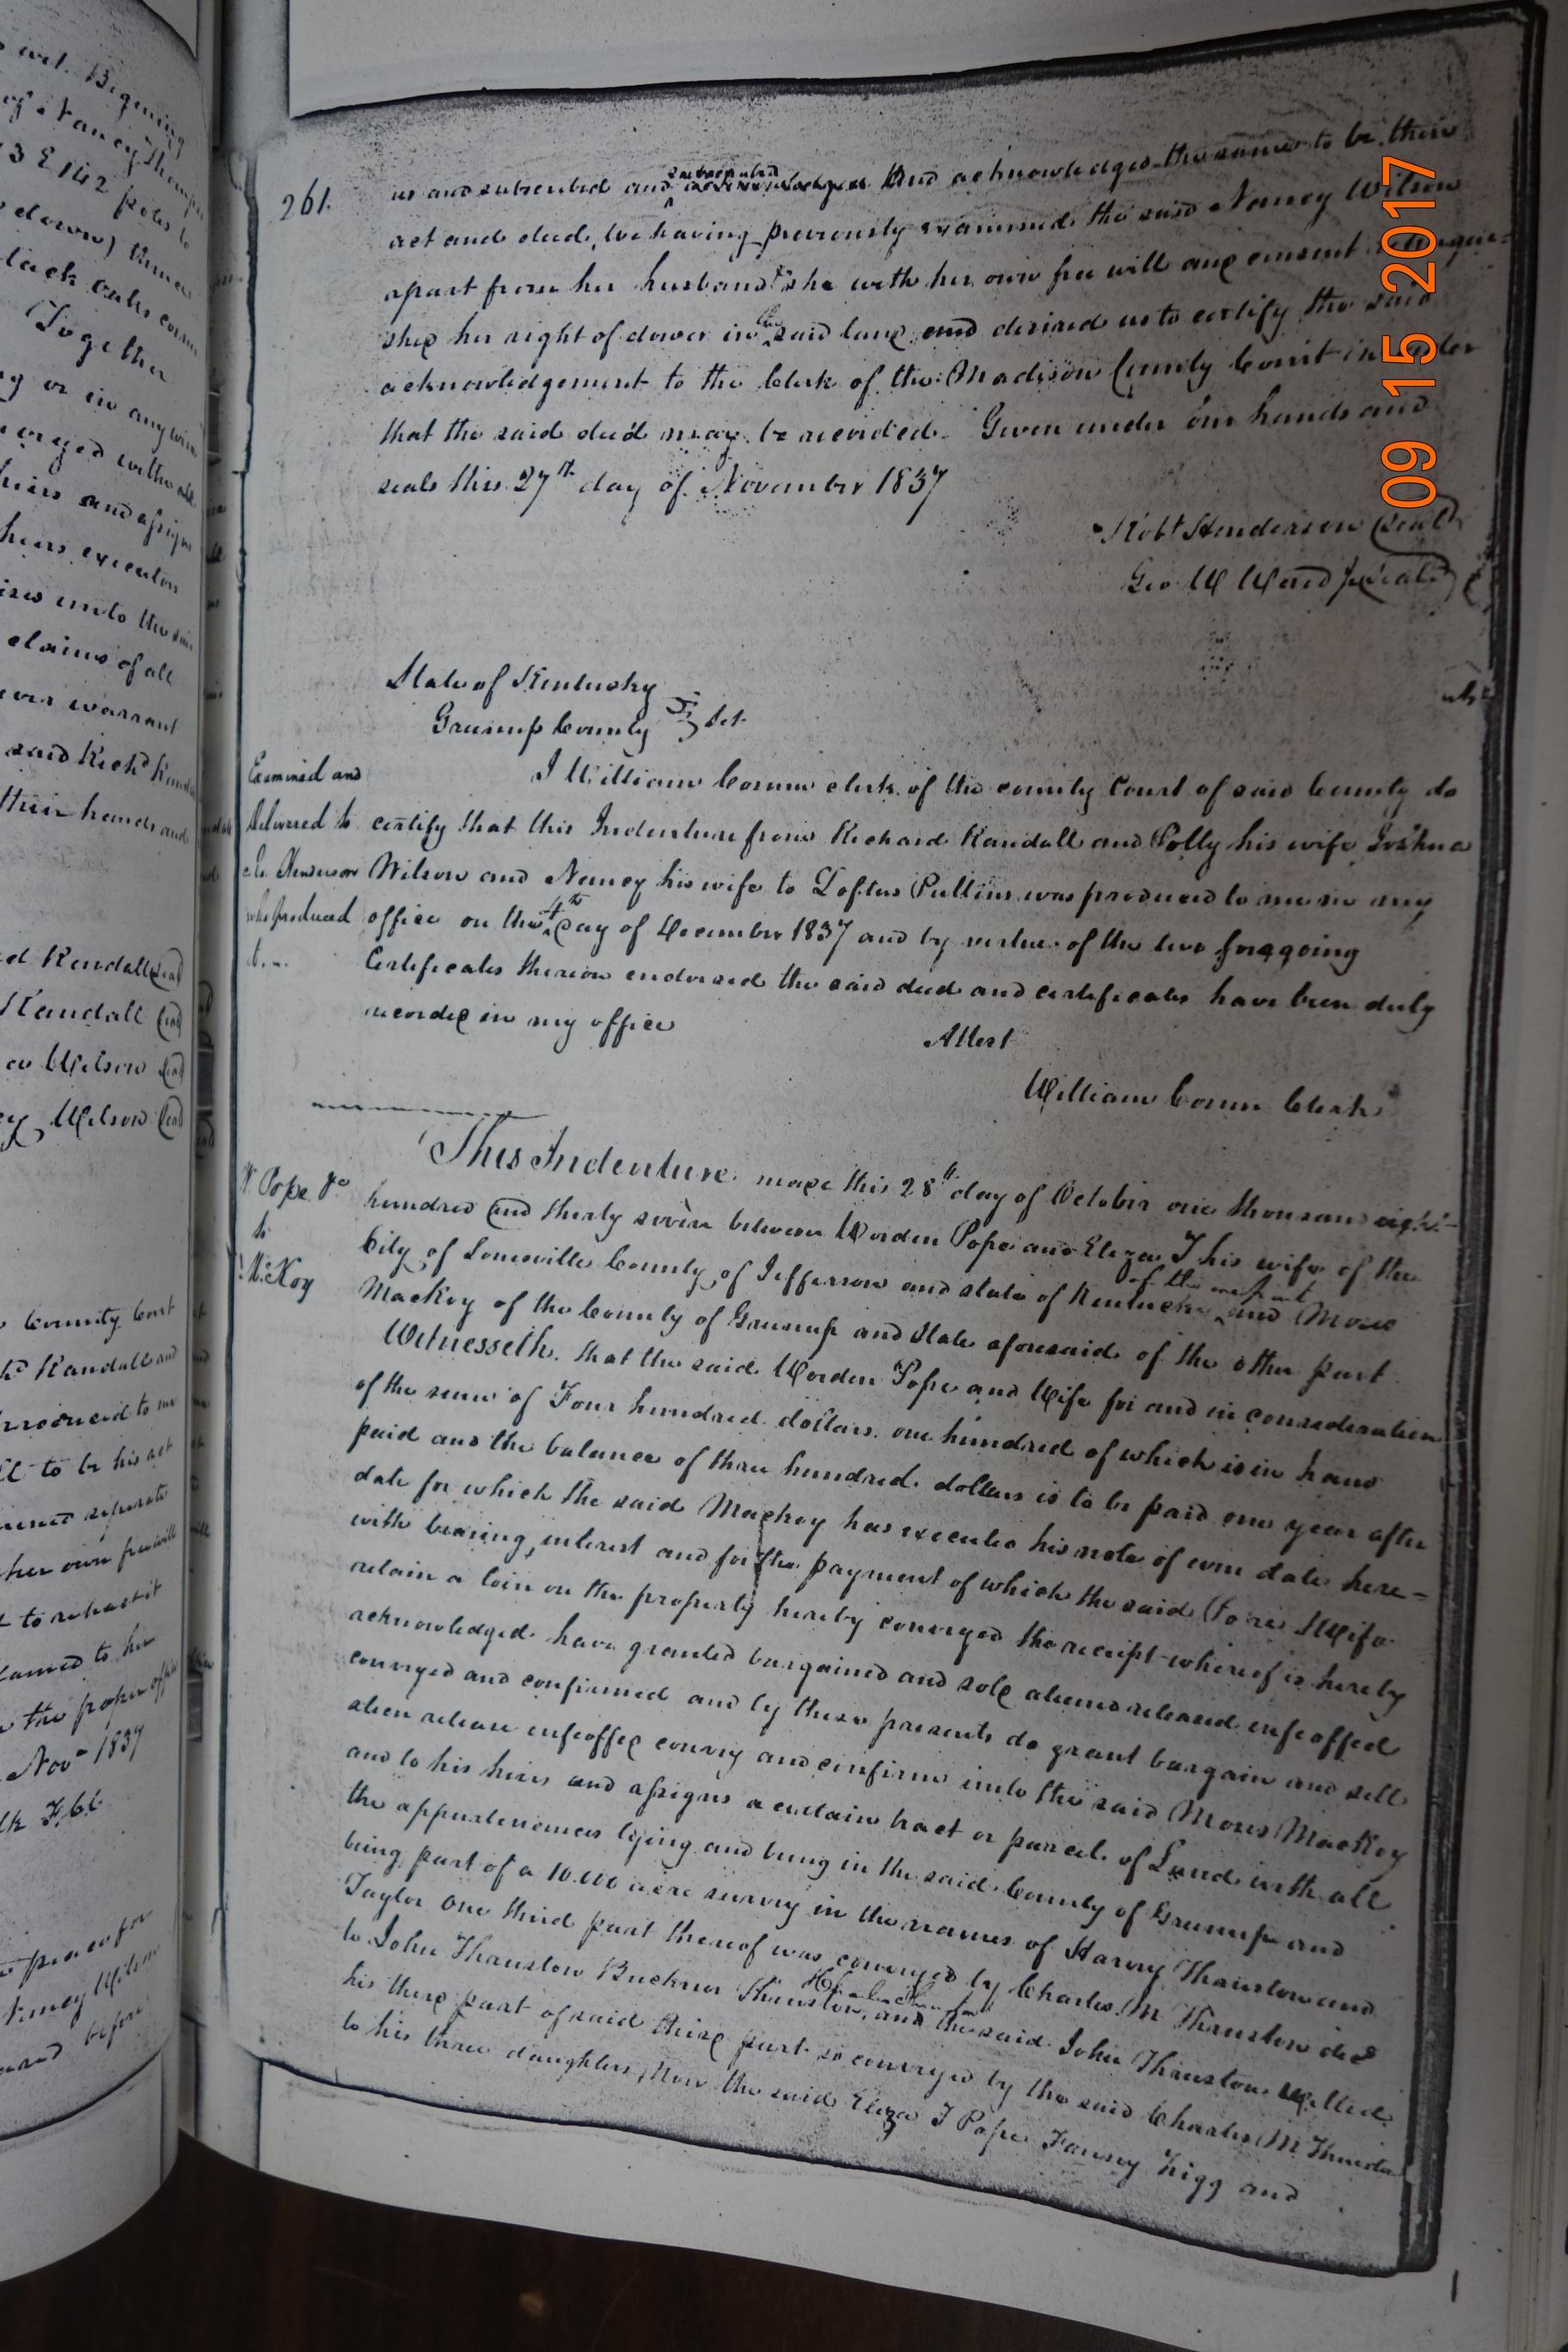 wit. Begining
of Nancy Thomp
3 E 142 poles to
down) thence
lack oaks corn
Together
g or in any wise
heirs and assigns
heirs executors
ises unto the sai
claims of all
ever warrant
said Richd Randa
their hands and
ed Randall (Seal)
Randall (Seal)
Wilson (Seal)
ey Wilson (Seal)
County Court
Randall and
produced to me
to be his act
separate
her own free will
to retract it
to her
the proper office
Nov 1837
261.
us and subscribed and acknowledged the same to be their
act and deed, we having previously examined the said Nancy Wilson
apart from her husband & she with her own free will and consent relinquie-
shed her right of dower in the said land and desired us to certify the said
acknowledgement to the Clerk of the Madison County Court in order
that the said deed may be recorded. Given under our hands and
seals this 27th day of November 1837
Robt Henderson (Seal)
Geo W Ward (Seal)
State of Kentucky
Greenup County } Sct
Examined and
delivered to
who produced
I William Corum clerk of the county Court of said County do
certify that this Indenture from Richard Randall and Polly his wife Joshua
Wilson and Nancy his wife to Loftus Pullins was produced to me in my
office on the 4th day of December 1837 and by virtue of the two foregoing
Certificates thereon endorsed the said deed and certificates have been duly
recorded in my office
Attest
William Corum Clerk
W. Pope &c
to
M. McKoy
This Indenture made this 28th day of October one thousand eight
hundred and thirty seven between Worden Pope and Eliza T his wife of the
City of Louisville County of Jefferson and state of Kentucky of the one part and Moses
Mackoy of the County of Greenup and State aforesaid of the other part
Witnesseth. that the said Worden Pope and Wife for and in consideration
of the sum of Four hundred dollars. one hundred of which is in hand
paid and the balance of three hundred dollars is to be paid one year after
date for which the said Mackoy has executed his note of even date here-
with bearing interest and for the payment of which the said Wife
retain a lein on the property hereby conveyed the receipt whereof is hereby
acknowledged have granted bargained and sold aliened released enfeoffed
conveyed and confirmed and by these presents do grant bargain and sell
alien release enfeoffed convey and confirm unto the said Moses Mackoy
and to his heirs and assigns a certain tract or parcel of Land with all
the appurtenences lying and being in the said County of Greenup and
being part of a 10.000 acre survey in the names of Harvey Thruston and
Taylor One third part thereof was conveyed by Charles M Thruston decd
to John Thruston Buckner Thruston, and the said John Thruston Willed
his third part of said third part so conveyed by the said Charles M Thrusto
to his three daughters, Now the said Eliza T Pope Fanny Figg and
09 15 2017